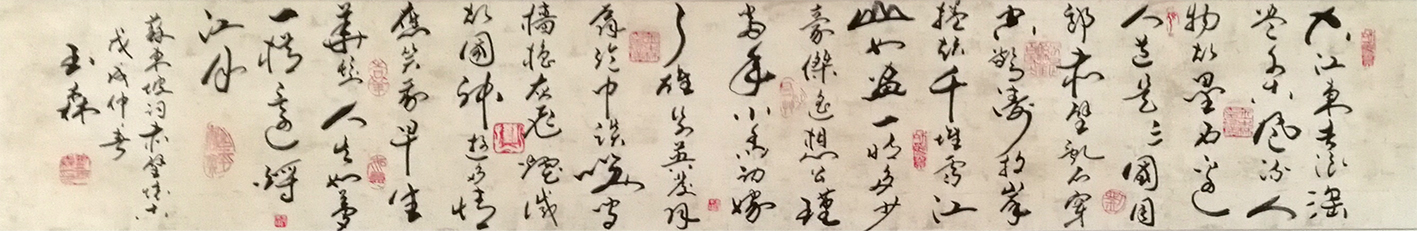 大江東去浪淘
盡千古風流人
物故壘西邊
人道是三國周
郎赤壁亂石穿
空驚濤拍岸
捲起千堆雪江
山如畫一時多少
豪傑遙想公瑾
當年小喬初嫁
了雄姿英發羽
扇綸巾談笑間
檣櫓灰飛煙滅
故國神遊多情
應笑我早生
華髮人生如夢
一樽還酹
江月
蘇東坡詞赤壁懷古
戊戌仲春
玉森